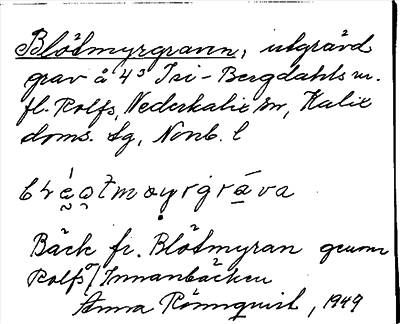 Blötmyrgraven, utgrävd
grav å 4³ Isi-Bergdahls m.
fl. Rolfs, Nederkalix sn, Kalix
doms. tg, Norrb. l
Bäck fr. Blötmyran genom
Rolfs/Innanbäcken
Anna Rönnquist, 1949